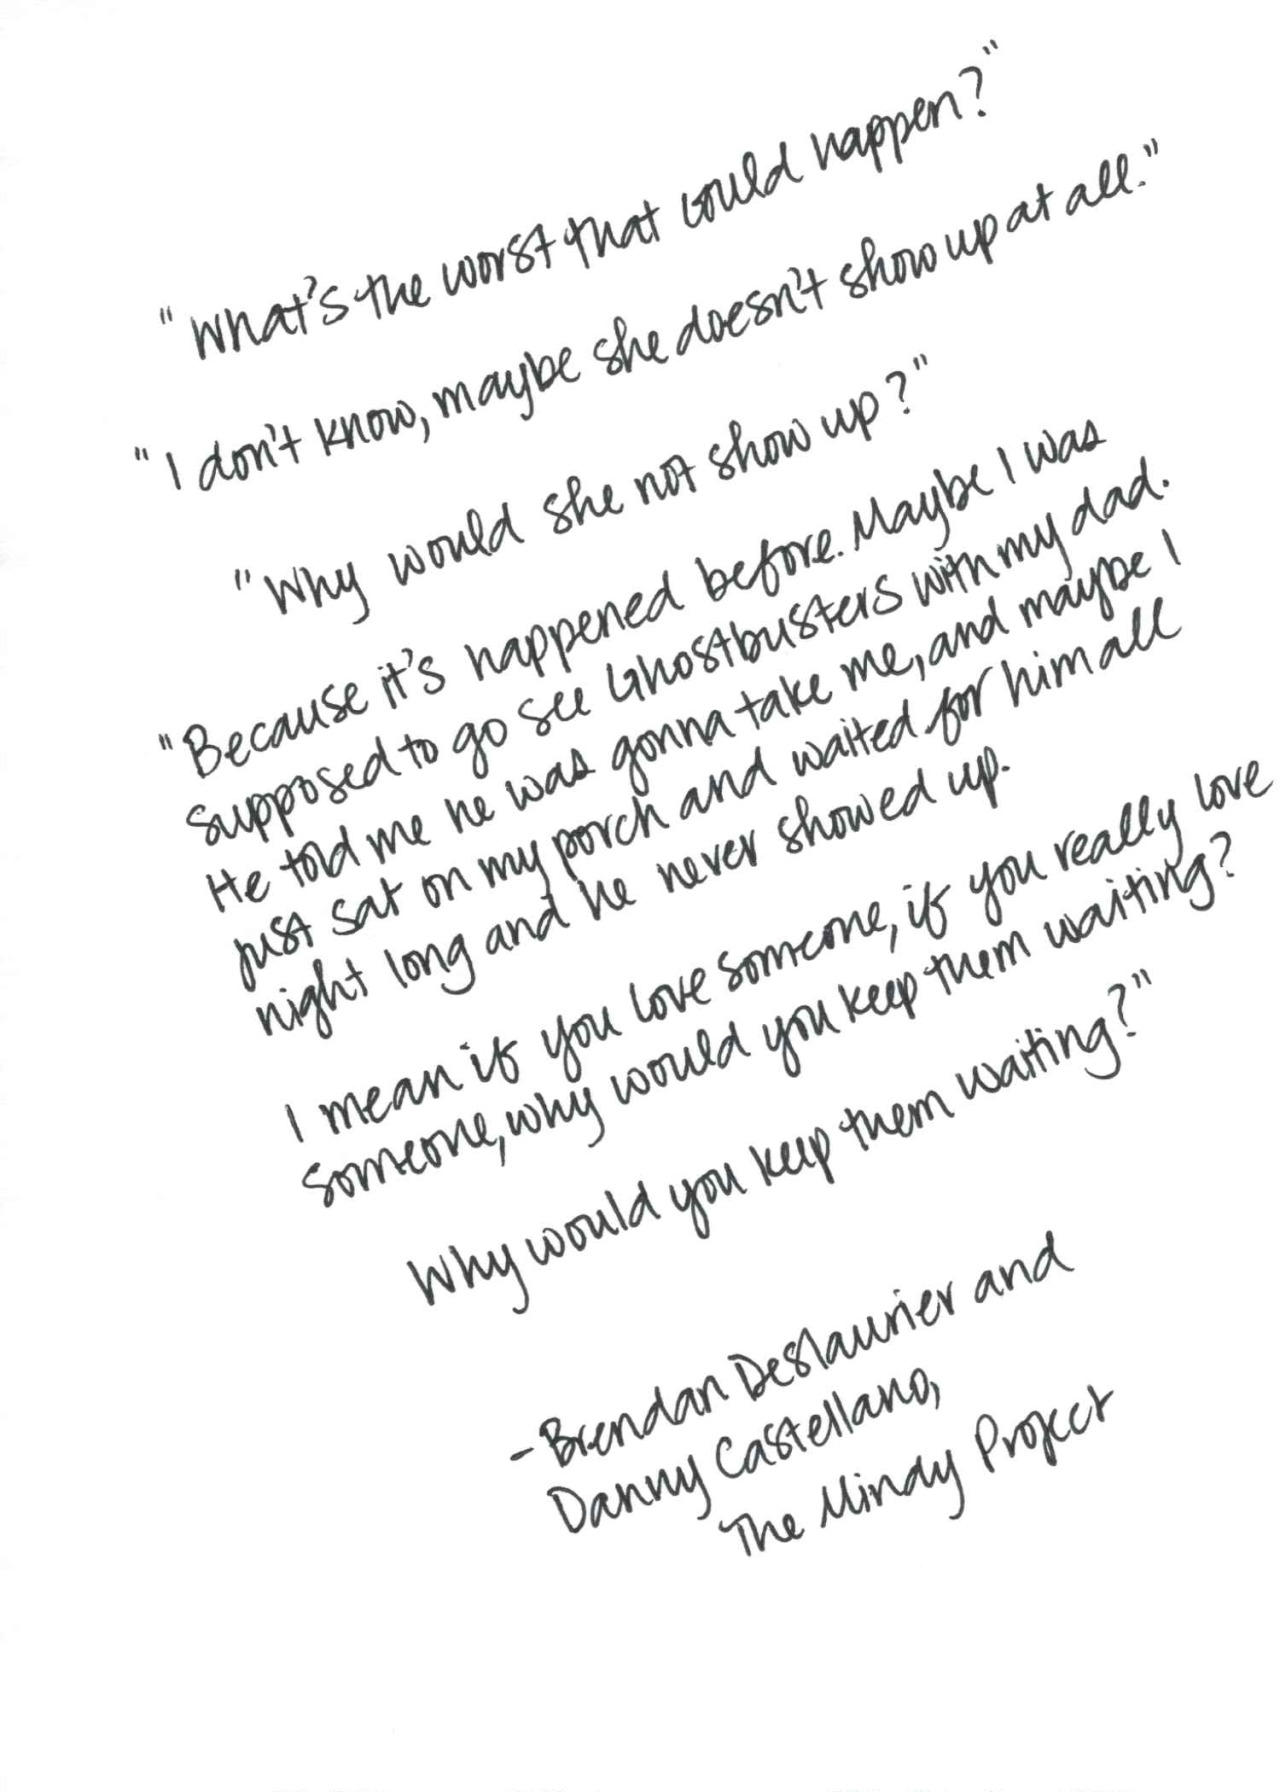 "What's the worst that could happen?"
"I don't know, maybe she doesn't show up at all."
"Why would she not show up?"
"Because it's happened before. Maybe I was
supposed to go see Ghostbusters with my dad.
He told me he was gonna take me, and maybe I
just sat on my porch and waited for him all
night long and he never showed up.
I mean if you love someone, if you really love
someone, why would you keep them waiting?
Why would you keep them waiting?"
-Brendan Deslaurier and
Danny Castellano,
The Mindy Project